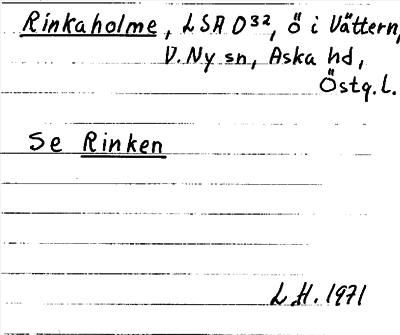 Rinkaholme, LSA D32, ö i Vättern,
V. Ny sn, Aska hd,
Östg. l.
Se Rinken
L H. 1971